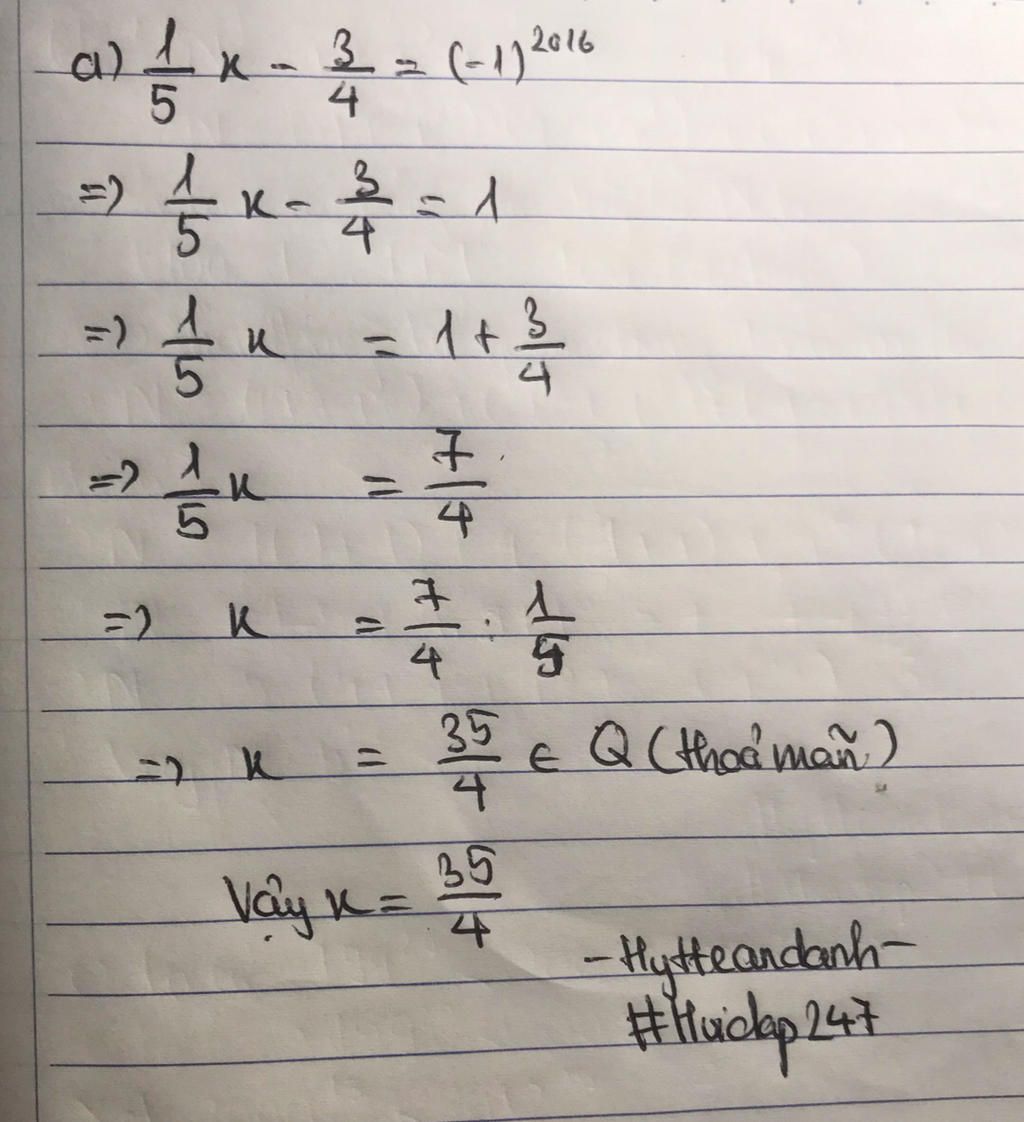 a) 1/5 x - 3/4 = (-1)^2016
=> 1/5 x - 3/4 = 1
=> 1/5 x = 1 + 3/4
=> 1/5 x = 7/4
=> x = 7/4 : 1/5
=> x = 35/4 ∈ Q (thoả mãn)
Vậy x = 35/4
- Hytteandanh -
#Hoidap247